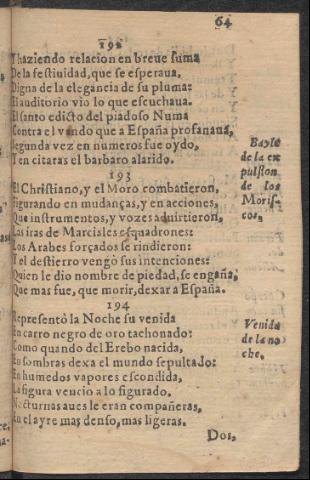 64
192
Y haziendo relacion en breue suma
De la festiuidad, que se esperaua,
Digna de la elegancia de su pluma:
El auditorio vio lo que escuchaua.
El santo edicto del piadoso Numa
Contra el vando que a España profanaua,
Segunda vez en numeros fue oydo,
Ten citaras el barbaro alarido.
Bayle
de la ex
pulsion
de los
Moris-
cos,
193
El Christiano, y el Moro combatieron,
Figurando en mudanças, y en acciones,
Que instrumentos, y vozes aduirtieron,
Las iras de Marciales esquadrones:
Los Arabes forçados se rindieron:
Y el destierro vengò sus intenciones:
Quien le dio nombre de piedad, se engaña,
Que mas fue, que morir, dexar a España.
194
Representò la Noche su venida
En carro negro de oro tachonado:
Como quando del Erebo nacida,
En sombras dexa el mundo sepultado:
En humedos vapores escondida,
La figura vencio a lo figurado.
Nocturnas aues le eran compañeras,
En el ayre mas denso, mas ligeras.
Venida
de la no
che.
Dos,